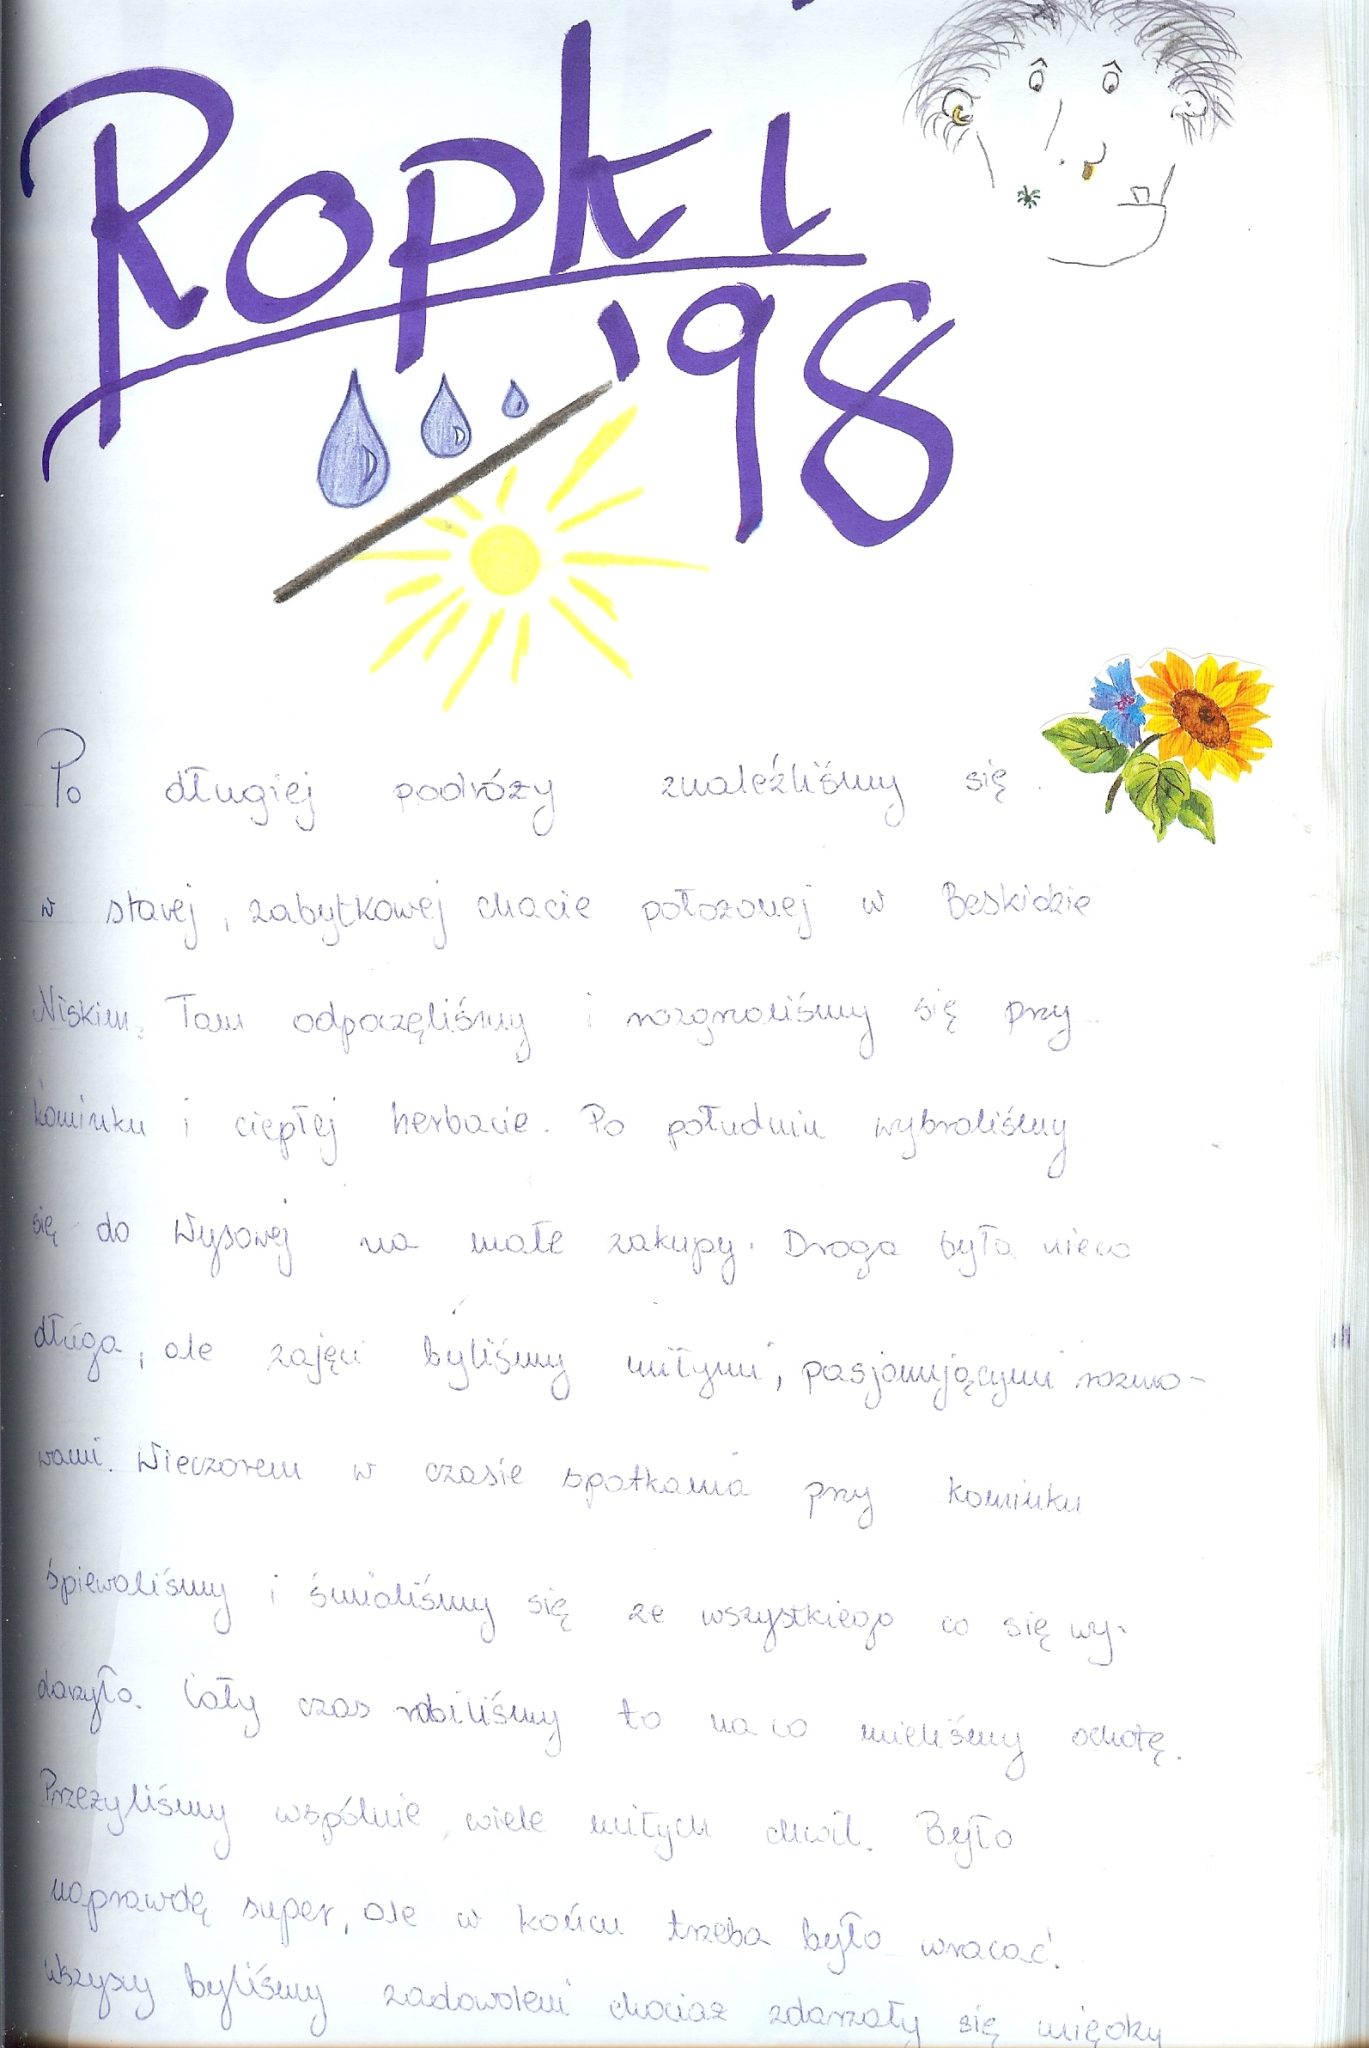 Ropki
'98
Po długiej podróży znaleźliśmy się
w starej, zabytkowej chacie położonej w Beskidzie
Niskim. Tam odpoczęliśmy i rozgrzaliśmy się przy
kominku i ciepłej herbacie. Po południu wybraliśmy
się do Wysowej na małe zakupy. Droga była nieco
długa, ale zajęci byliśmy miłymi, pasjonującymi rozmo-
wami. Wieczorem w czasie spotkania przy kominku
śpiewaliśmy i śmialiśmy się ze wszystkiego co się wy-
darzyło. Cały czas robiliśmy to na co mieliśmy ochotę.
Przeżyliśmy wspólnie wiele miłych chwil. Było
naprawdę super, ale w końcu trzeba było wracać.
Wszyscy byliśmy zadowoleni chociaż zdarzały się między